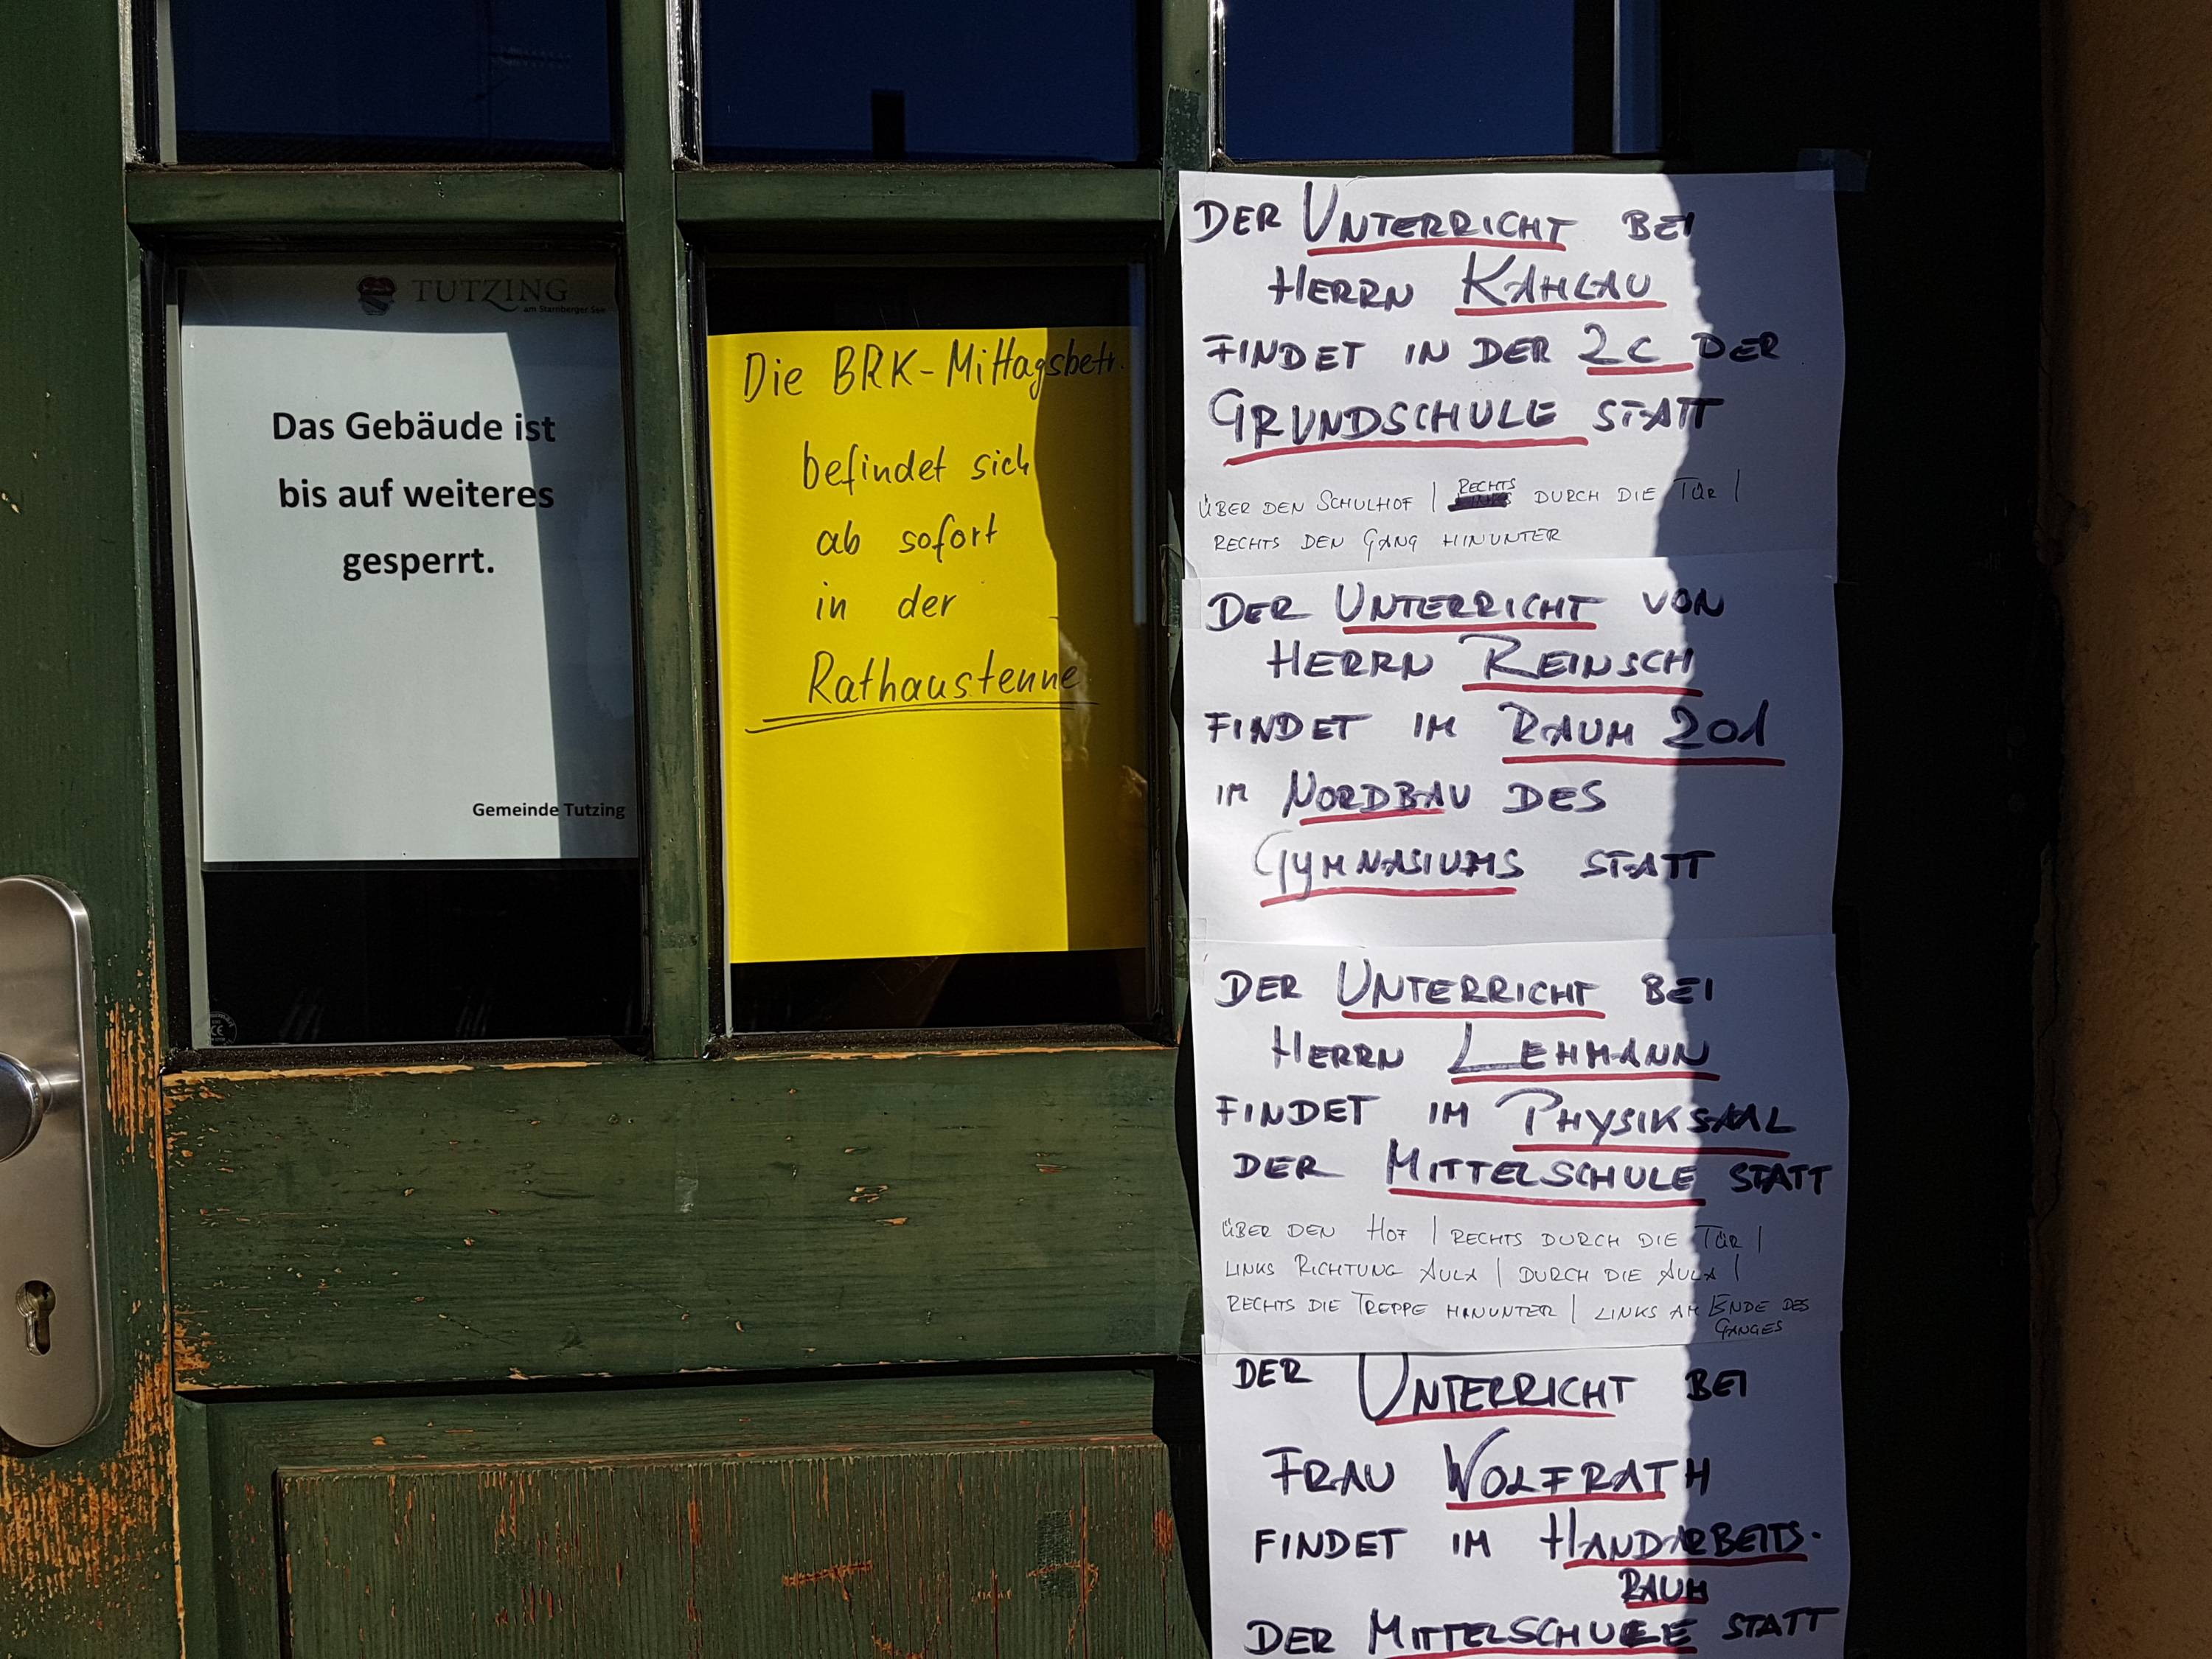 TUTZING
am Starnberger See
Das Gebäude ist
bis auf weiteres
gesperrt.
Gemeinde Tutzing
Die BRK-Mittagsbetr.
befindet sich
ab sofort
in der
Rathaustenne
DER UNTERRICHT BEI
HERRN KAHLAU
FINDET IN DER 2C DER
GRUNDSCHULE STATT
ÜBER DEN SCHULHOF | RECHTS DURCH DIE TÜR |
RECHTS DEN GANG HINUNTER
DER UNTERRICHT VON
HERRN REINSCH
FINDET IM RAUM 201
IM NORDBAU DES
GYMNASIUMS STATT
DER UNTERRICHT BEI
HERRN LEHMANN
FINDET IM PHYSIKSAAL
DER MITTELSCHULE STATT
ÜBER DEN HOF | RECHTS DURCH DIE TÜR |
LINKS RICHTUNG AULA | DURCH DIE AULA |
RECHTS DIE TREPPE HINUNTER | LINKS AM ENDE DES
GANGES
DER UNTERRICHT BEI
FRAU WOLFRATH
FINDET IM HANDARBEITS-
RAUM
DER MITTELSCHULE STATT